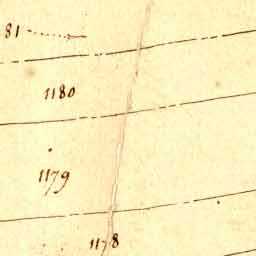 81
1180
1179
1178